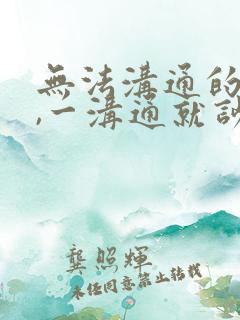 無法溝通的
,一溝通就
龔照輝
未經同意禁止轉載